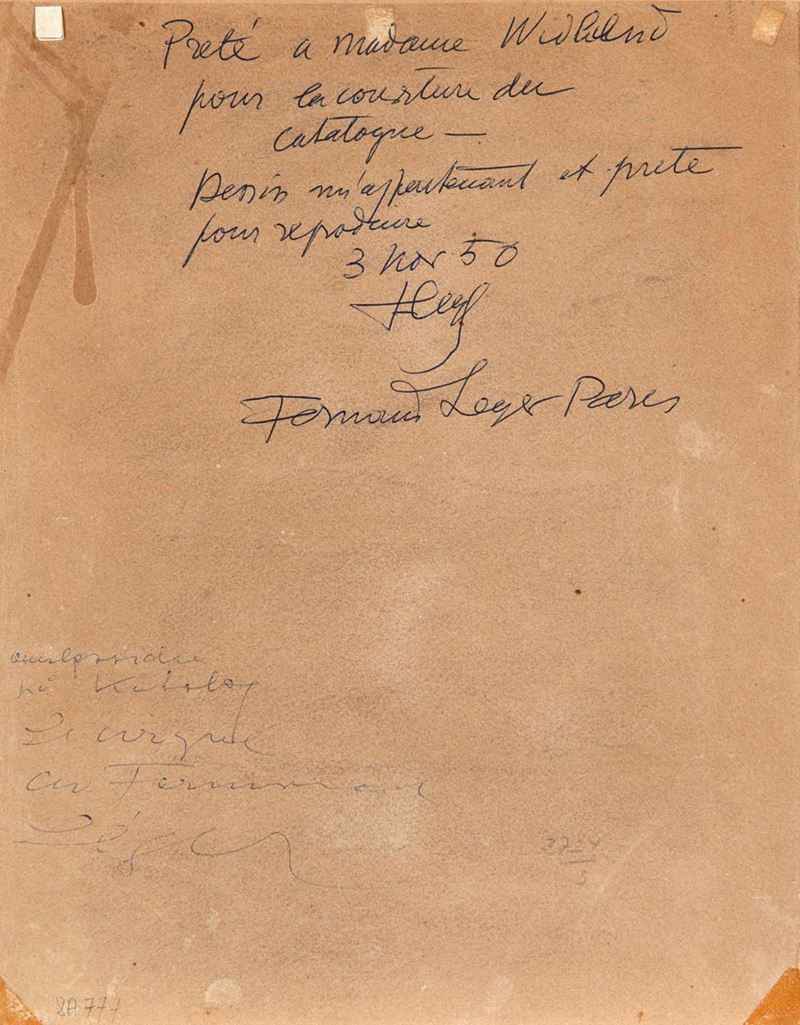 Preté a madame Widlund
pour la couverture du
catalogue —
Dessin m'appartenant et prete
pour reproduire
3 Nov 50
FLeg
Fernand Leger Paris
omslagssidan
på Katalog
Le cirque
av Fernand
Léger
8A777